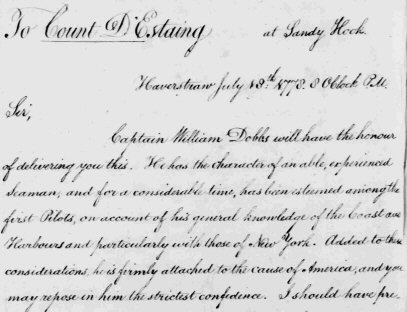 To Count D'Estaing at Sandy Hook.
Haverstraw July 18th. 1778. 8 OClock P.M.
Sir,
Captain William Dobbs will have the honour
of delivering you this. He has the character of an able, experienced
Seaman, and for a considerable time, has been esteemed among the
first Pilots, on account of his general knowledge of the Coast and
Harbours and particularly with those of New York. Added to these
considerations, he is firmly attached to the cause of America, and you
may repose in him the strictest confidence. I should have pre-